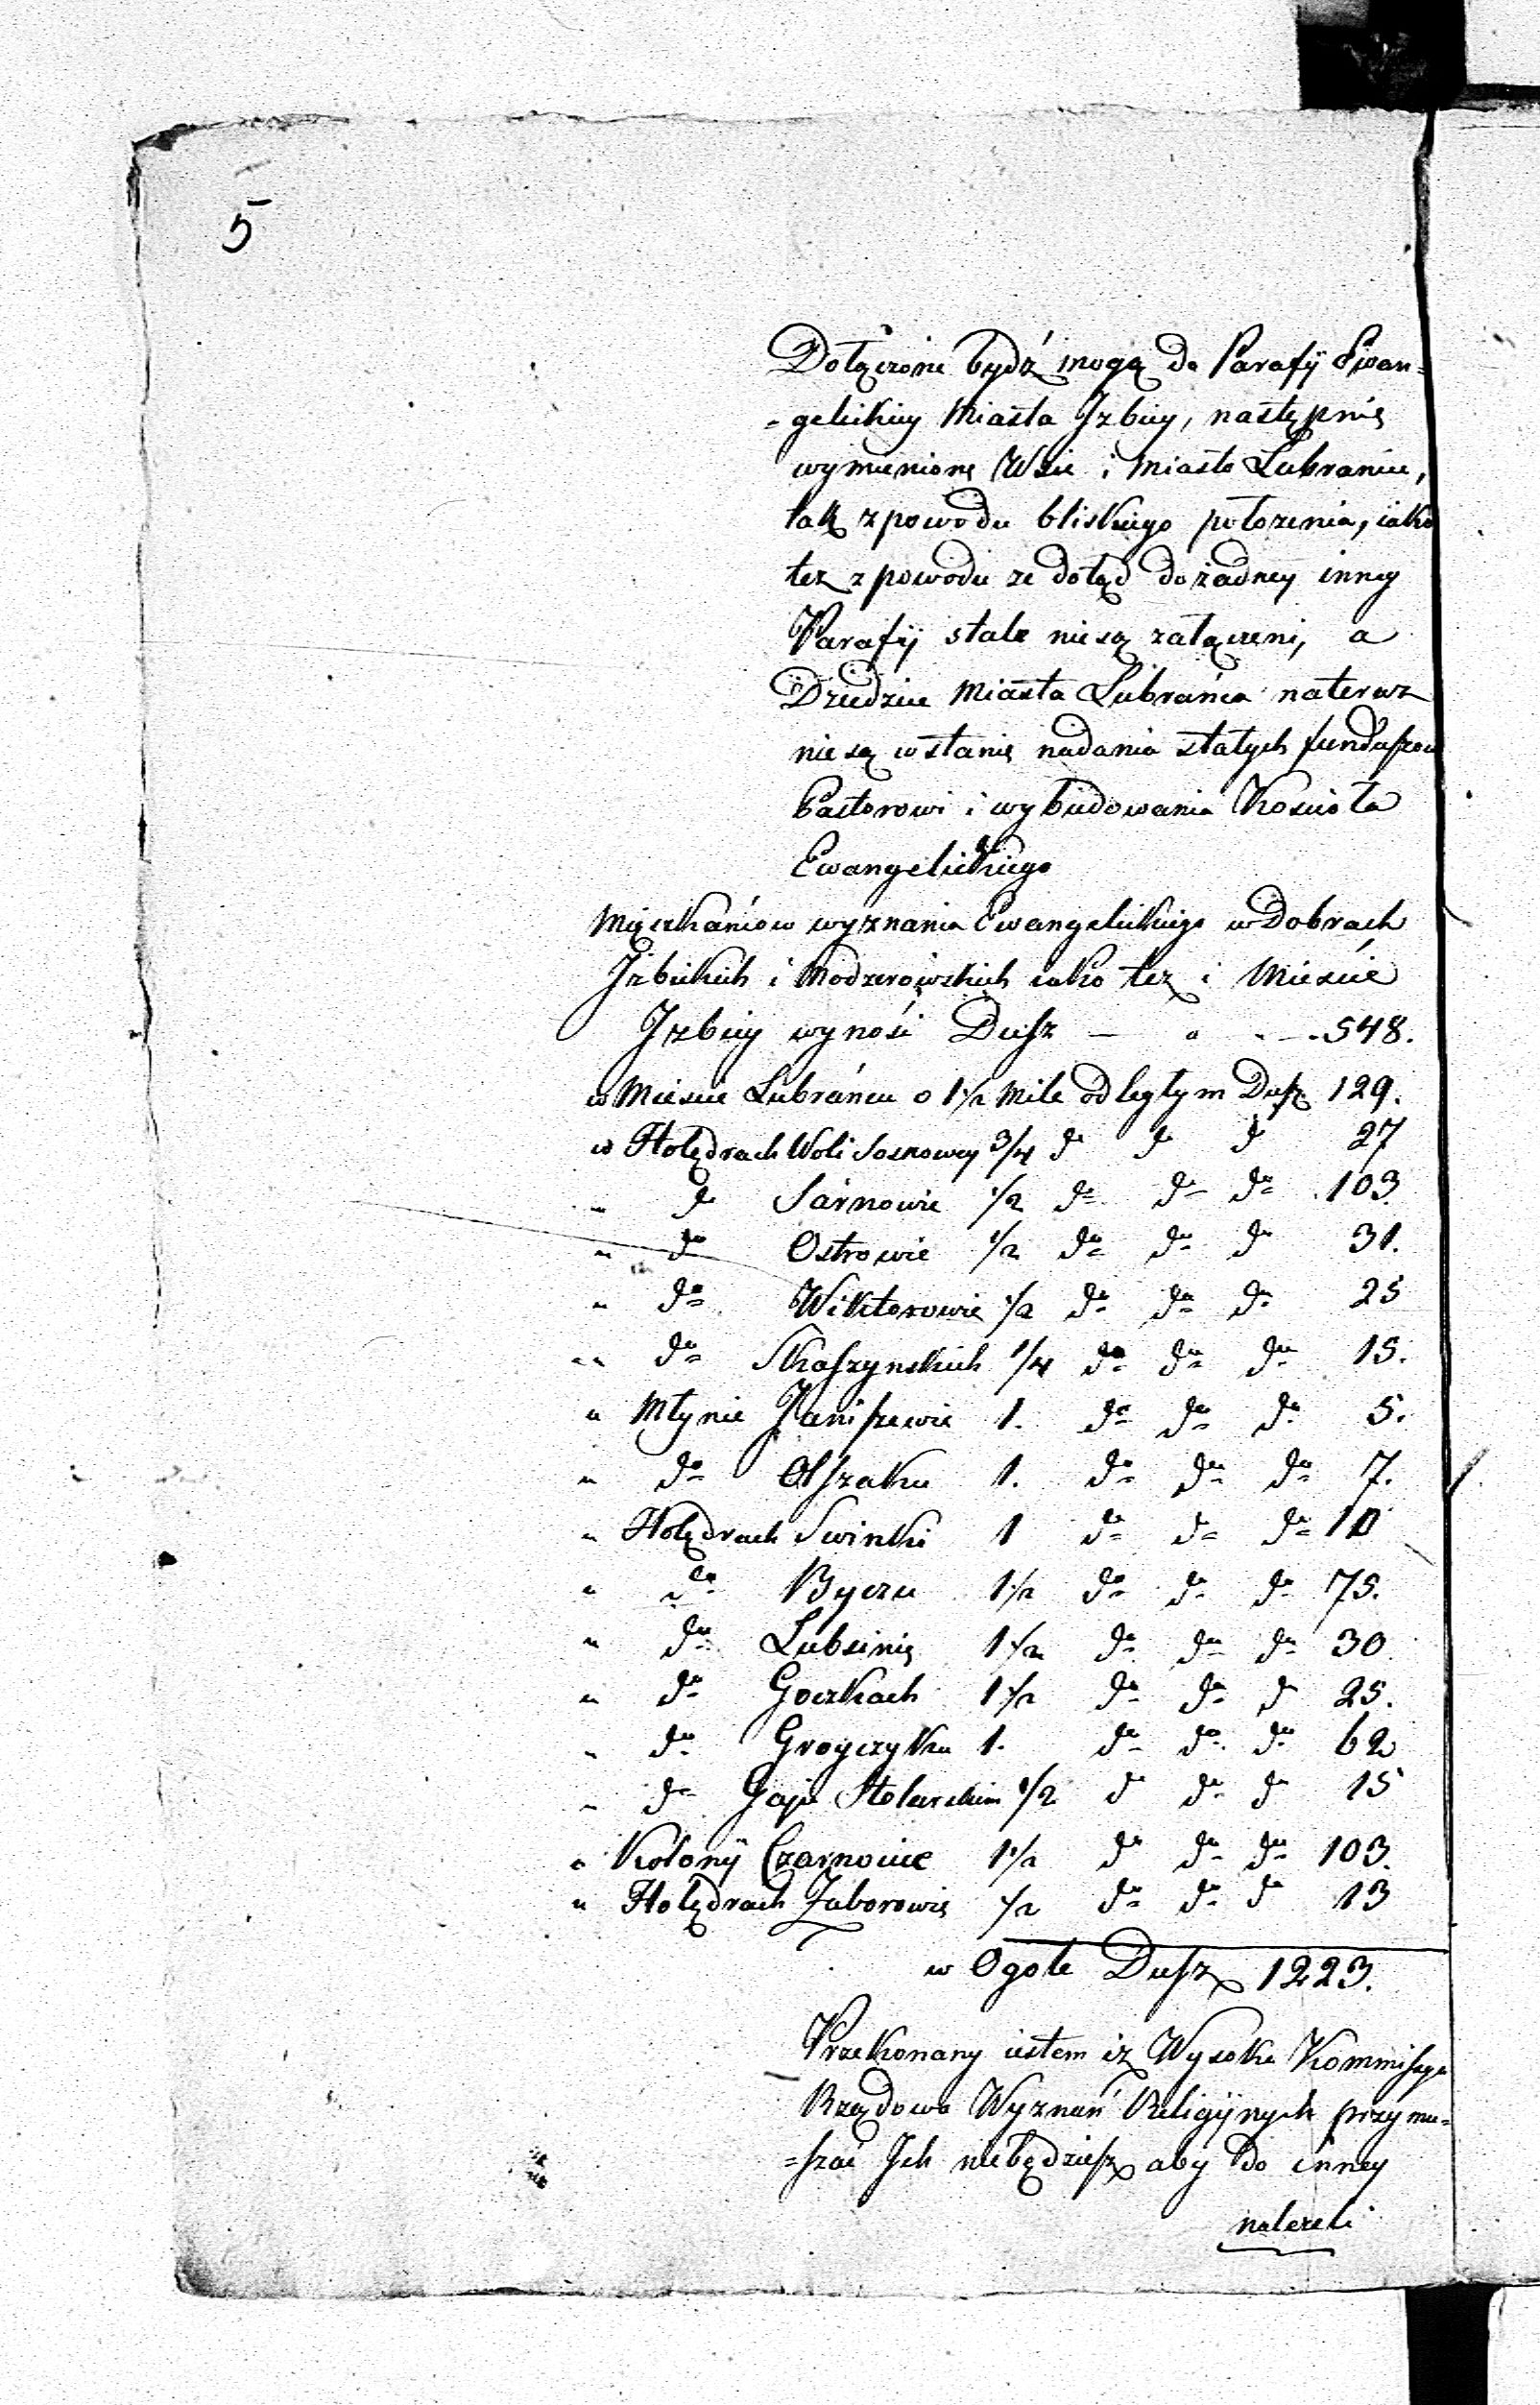 5
Dołączone bydź mogą do Parafij Ewan-
-gelickiey Miasta Izbicy, następnię
wymienionę Wsie i Miasto Lubraniec,
tak z powodu bliskiego położenia, iako
też z powodu że dotąd do żadney inney
Parafij stale nie są załączeni, a
Dziedzice Miasta Lubrańca na teraz
nie są w stanię nadania stałych funduszow
Pastorowi i wybudowania Kościoła
Ewangelickiego
Mięszkańców wyznania Ewangelickiego w Dobrach
Izbickich i Modzerowskich iako też i Mieście
Izbicy wynosi Dusz — " . - . 548.
w Mieście Lubrańcu o 1 1/2 Mile odległym Dusz 129.
w Holędrach Woli Sosnowey 3/4 do do do 27
" do Sarnowie 1/2 do do do 103
" do Ostrowie 1/2 do do do 31.
" do Wiktorowie 1/2 do do do 25
" do Skaszynskich 1/4 do do do 15.
" Młynie Janiszewie 1. do do do 5.
" do Olszaku 1. do do do 7.
" Holędrach Swinki 1 do do do 10
" do Byczu 1 1/2 do do do 75.
" do Lubsinię 1 1/2 do do do 30
" do Goczkach 1 1/2 do do do 25.
" do Groyczyku 1. do do do 62
" do Gaju Stolarskim 1/2 do do do 15
" Kolonij Czarnowice 1 1/2 do do do 103.
" Holędrach Zaborowię 1/2 do do do 13
w Ogole Dusz 1223.
Przekonany iestem iż Wysoka Kommissya
Rządowa Wyznań Religijnych przymu-
-szać Ich niebędziesz aby do inney
należeli